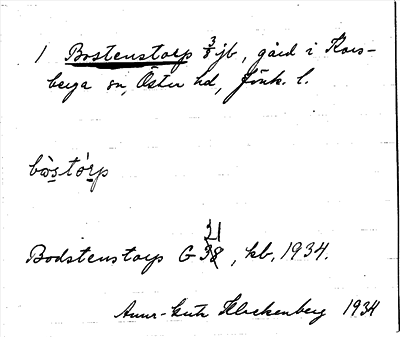 1 Bostenstorp 3/8 jb, gård i Kors-
berga sn, Östra hd, Jönk. l.
bòstórp
21
Bodstenstorp G 38, kb, 1934.
Anna-Greta Hackenberg 1934